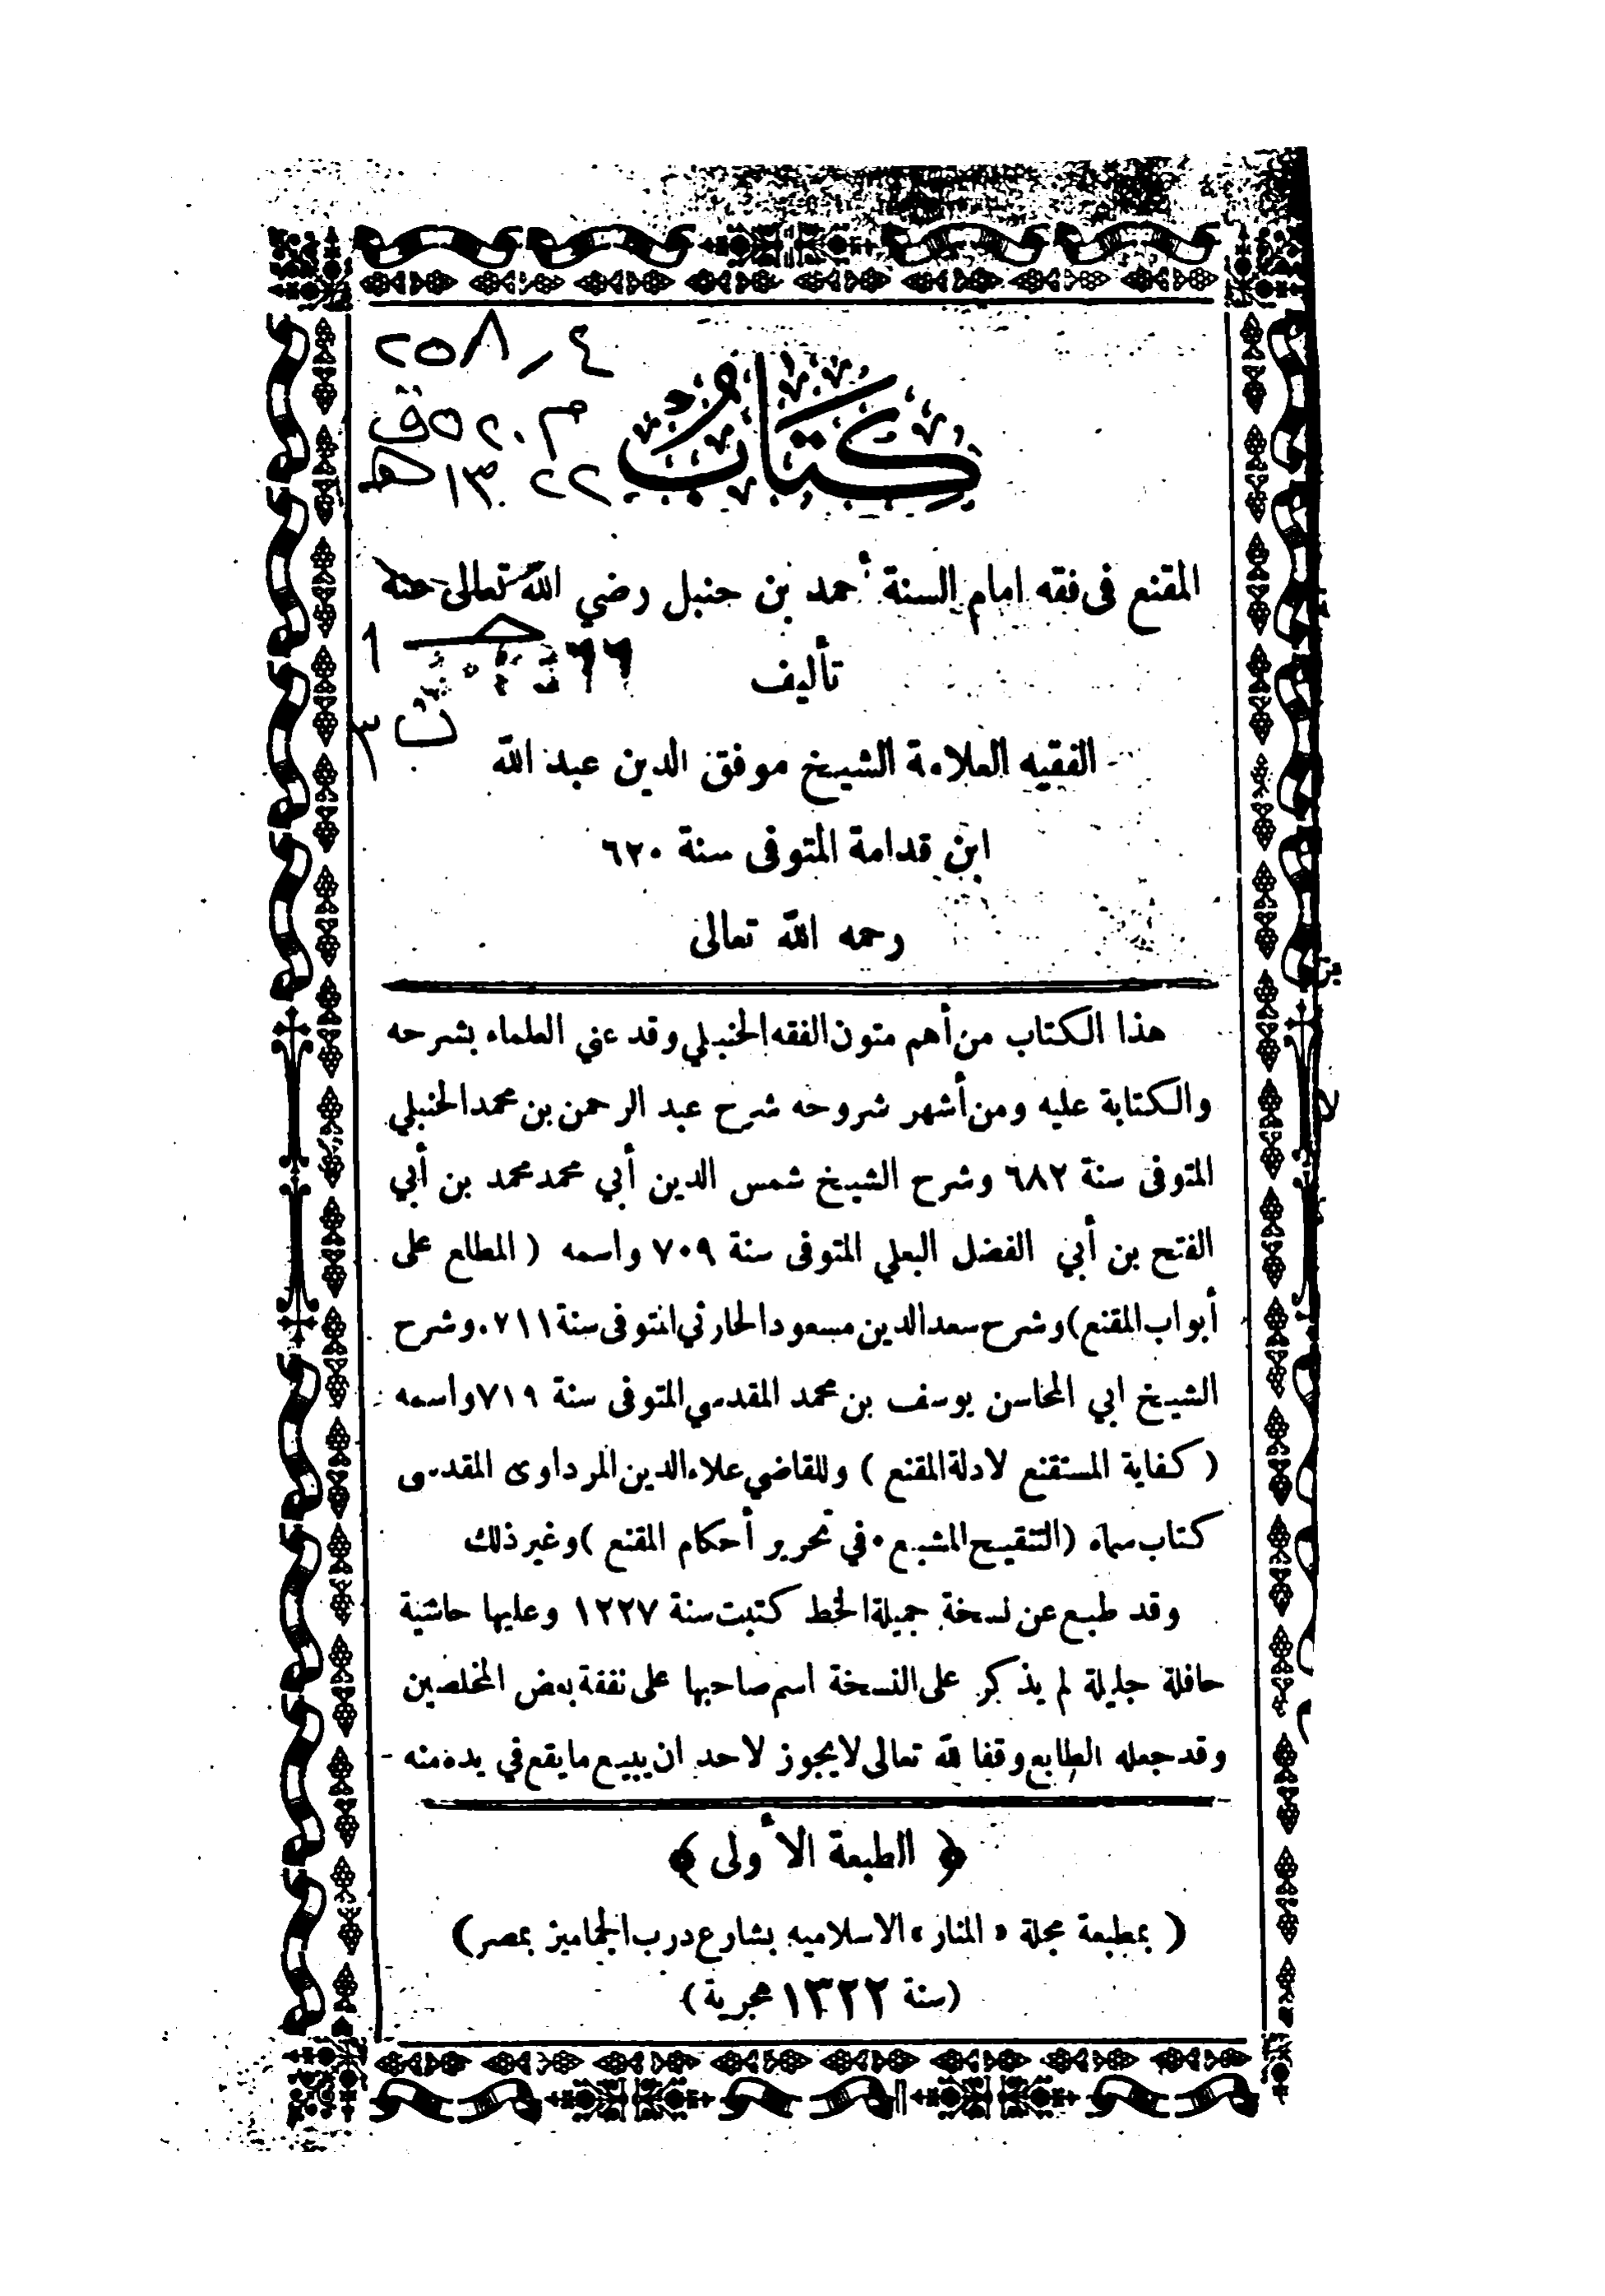 ٢٥٨٫٤
كتاب
م٥٢٠ق
١٣٢٢هـ
المقنع فى فقه امام السنة أحمد بن حنبل رضي الله تعالى عنه
١
٦٦
تأليف
٣ ت
الفقيه العلامة الشيخ موفق الدين عبد الله
ابن قدامة المتوفى سنة ٦٢٠
رحمه الله تعالى
هذا الكتاب من أهم متون الفقه الحنبلي وقد عني العلماء بشرحه
والكتابة عليه ومن أشهر شروحه شرح عبد الرحمن بن محمد الحنبلي
المتوفى سنة ٦٨٢ وشرح الشيخ شمس الدين أبي محمد محمد بن أبي
الفتح بن أبي الفضل البعلي المتوفى سنة ٧٠٩ واسمه ( المطلع على
أبواب المقنع) وشرح سعد الدين مسعود الحارثي المتوفى سنة ٧١١. وشرح
الشيخ ابي المحاسن يوسف بن محمد المقدسي المتوفى سنة ٧١٩ واسمه
( كفاية المستقنع لادلة المقنع ) وللقاضي علاء الدين المرداوى المقدسى
كتاب سماه (التنقيح المشبع في تحرير أحكام المقنع ) وغير ذلك
وقد طبع عن نسخة جميلة الخط كتبت سنة ١٢٢٧ وعليها حاشية
حافلة جليلة لم يذكر على النسخة اسم صاحبها على نفقة بعض المخلصين
وقد جعله الطابع وقفا لله تعالى لا يجوز لاحد ان يبيع ما يقع في يده منه
﴿ الطبعة الأولى ﴾
( بمطبعة مجلة « المنار » الاسلاميه بشارع درب الجماميز بمصر)
(سنة ١٣٢٢ هجرية)